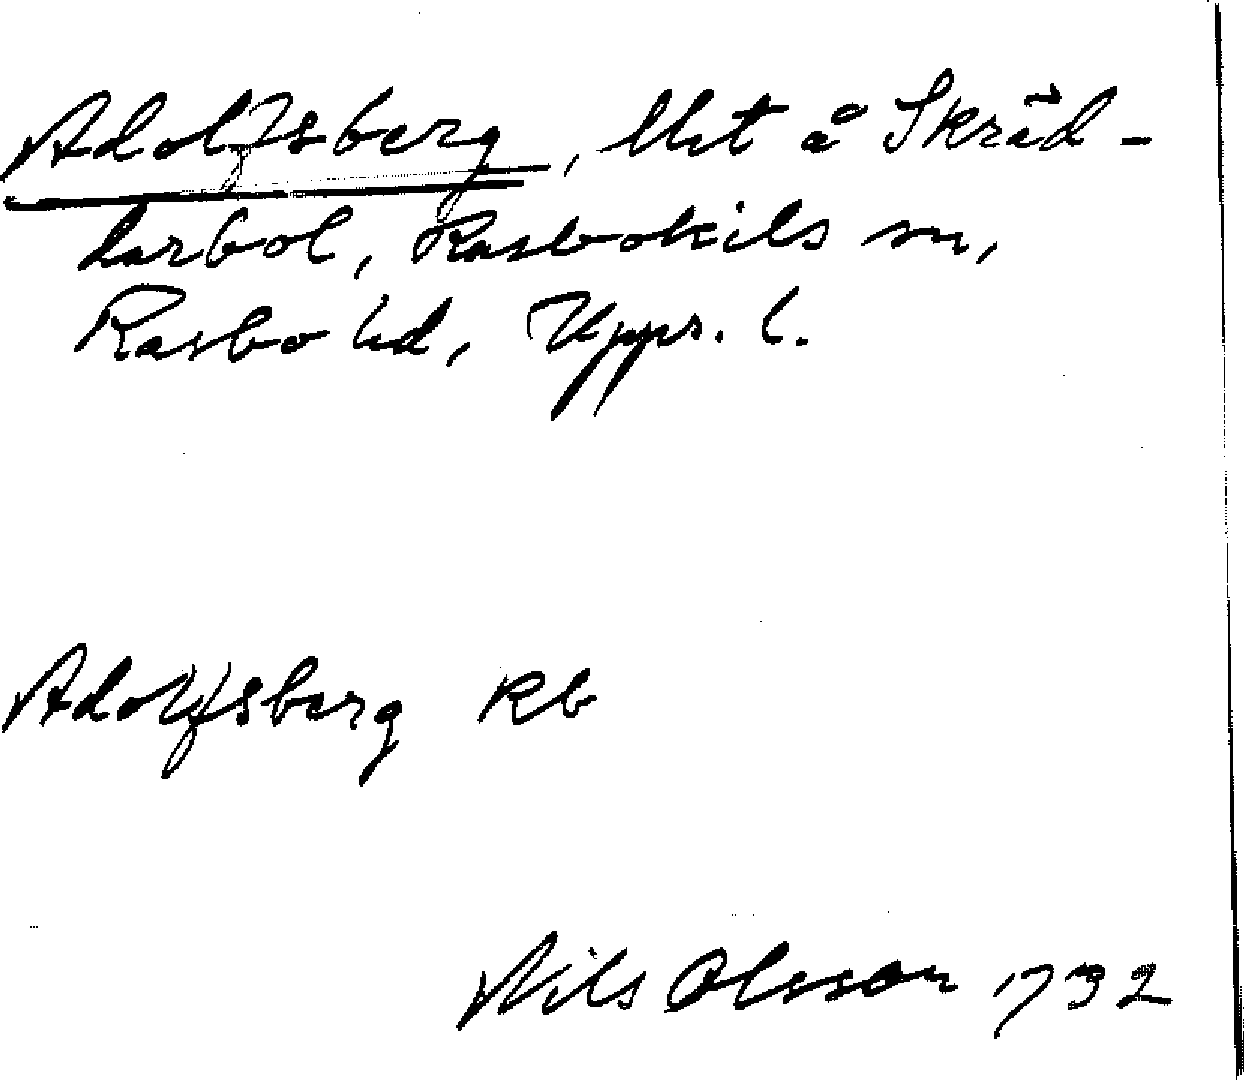 Adolfsberg, lht å Skräd-
darbol, Rasbokils sn,
Rasbo hd, Upps. l.
Adolfsberg Rb
Nils Olsson 1732